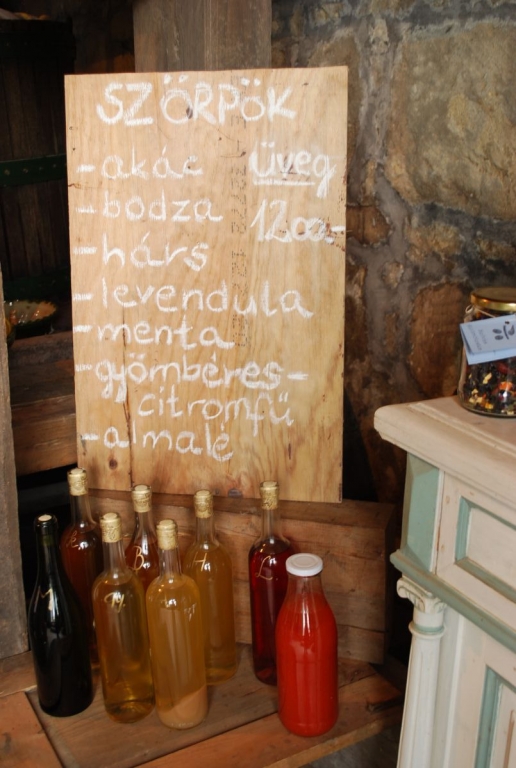 SZÖRPÖK
-akác
-bodza
-hárs
-levendula
-menta
-gyömbéres-
citromfű
-almalé
üveg
1200.-
M
B
A
L